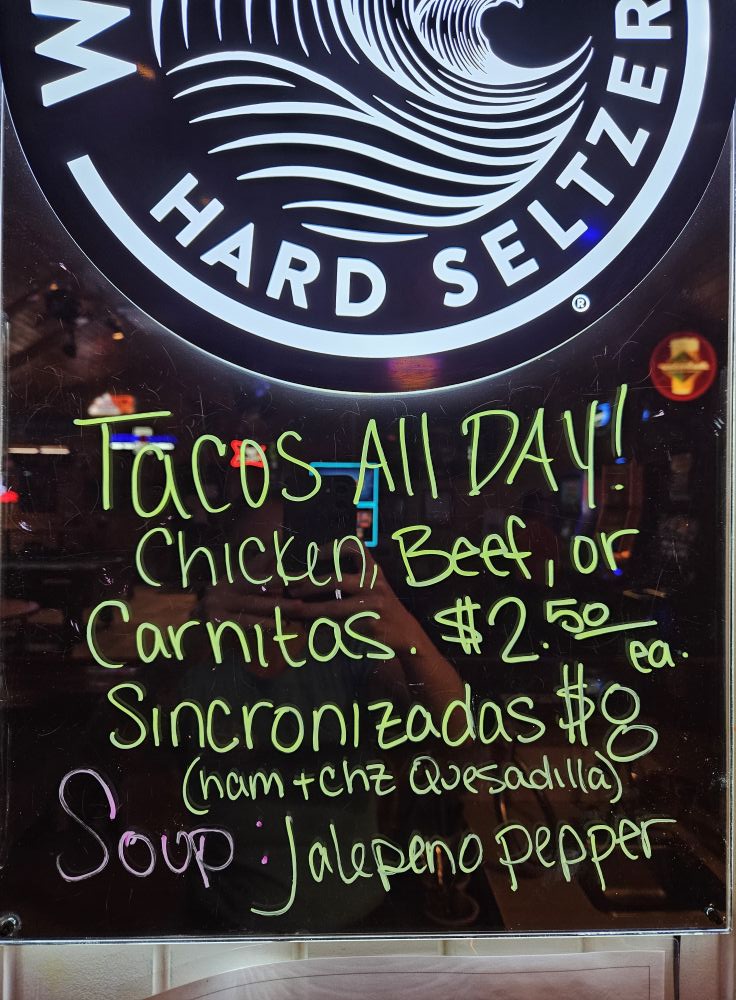 W
HARD SELTZER
®
Tacos All DAY!
Chicken, Beef, or
Carnitas. $2.50 ea.
Sincronizadas $8
(ham + chz Quesadilla)
Soup: Jalepeno pepper